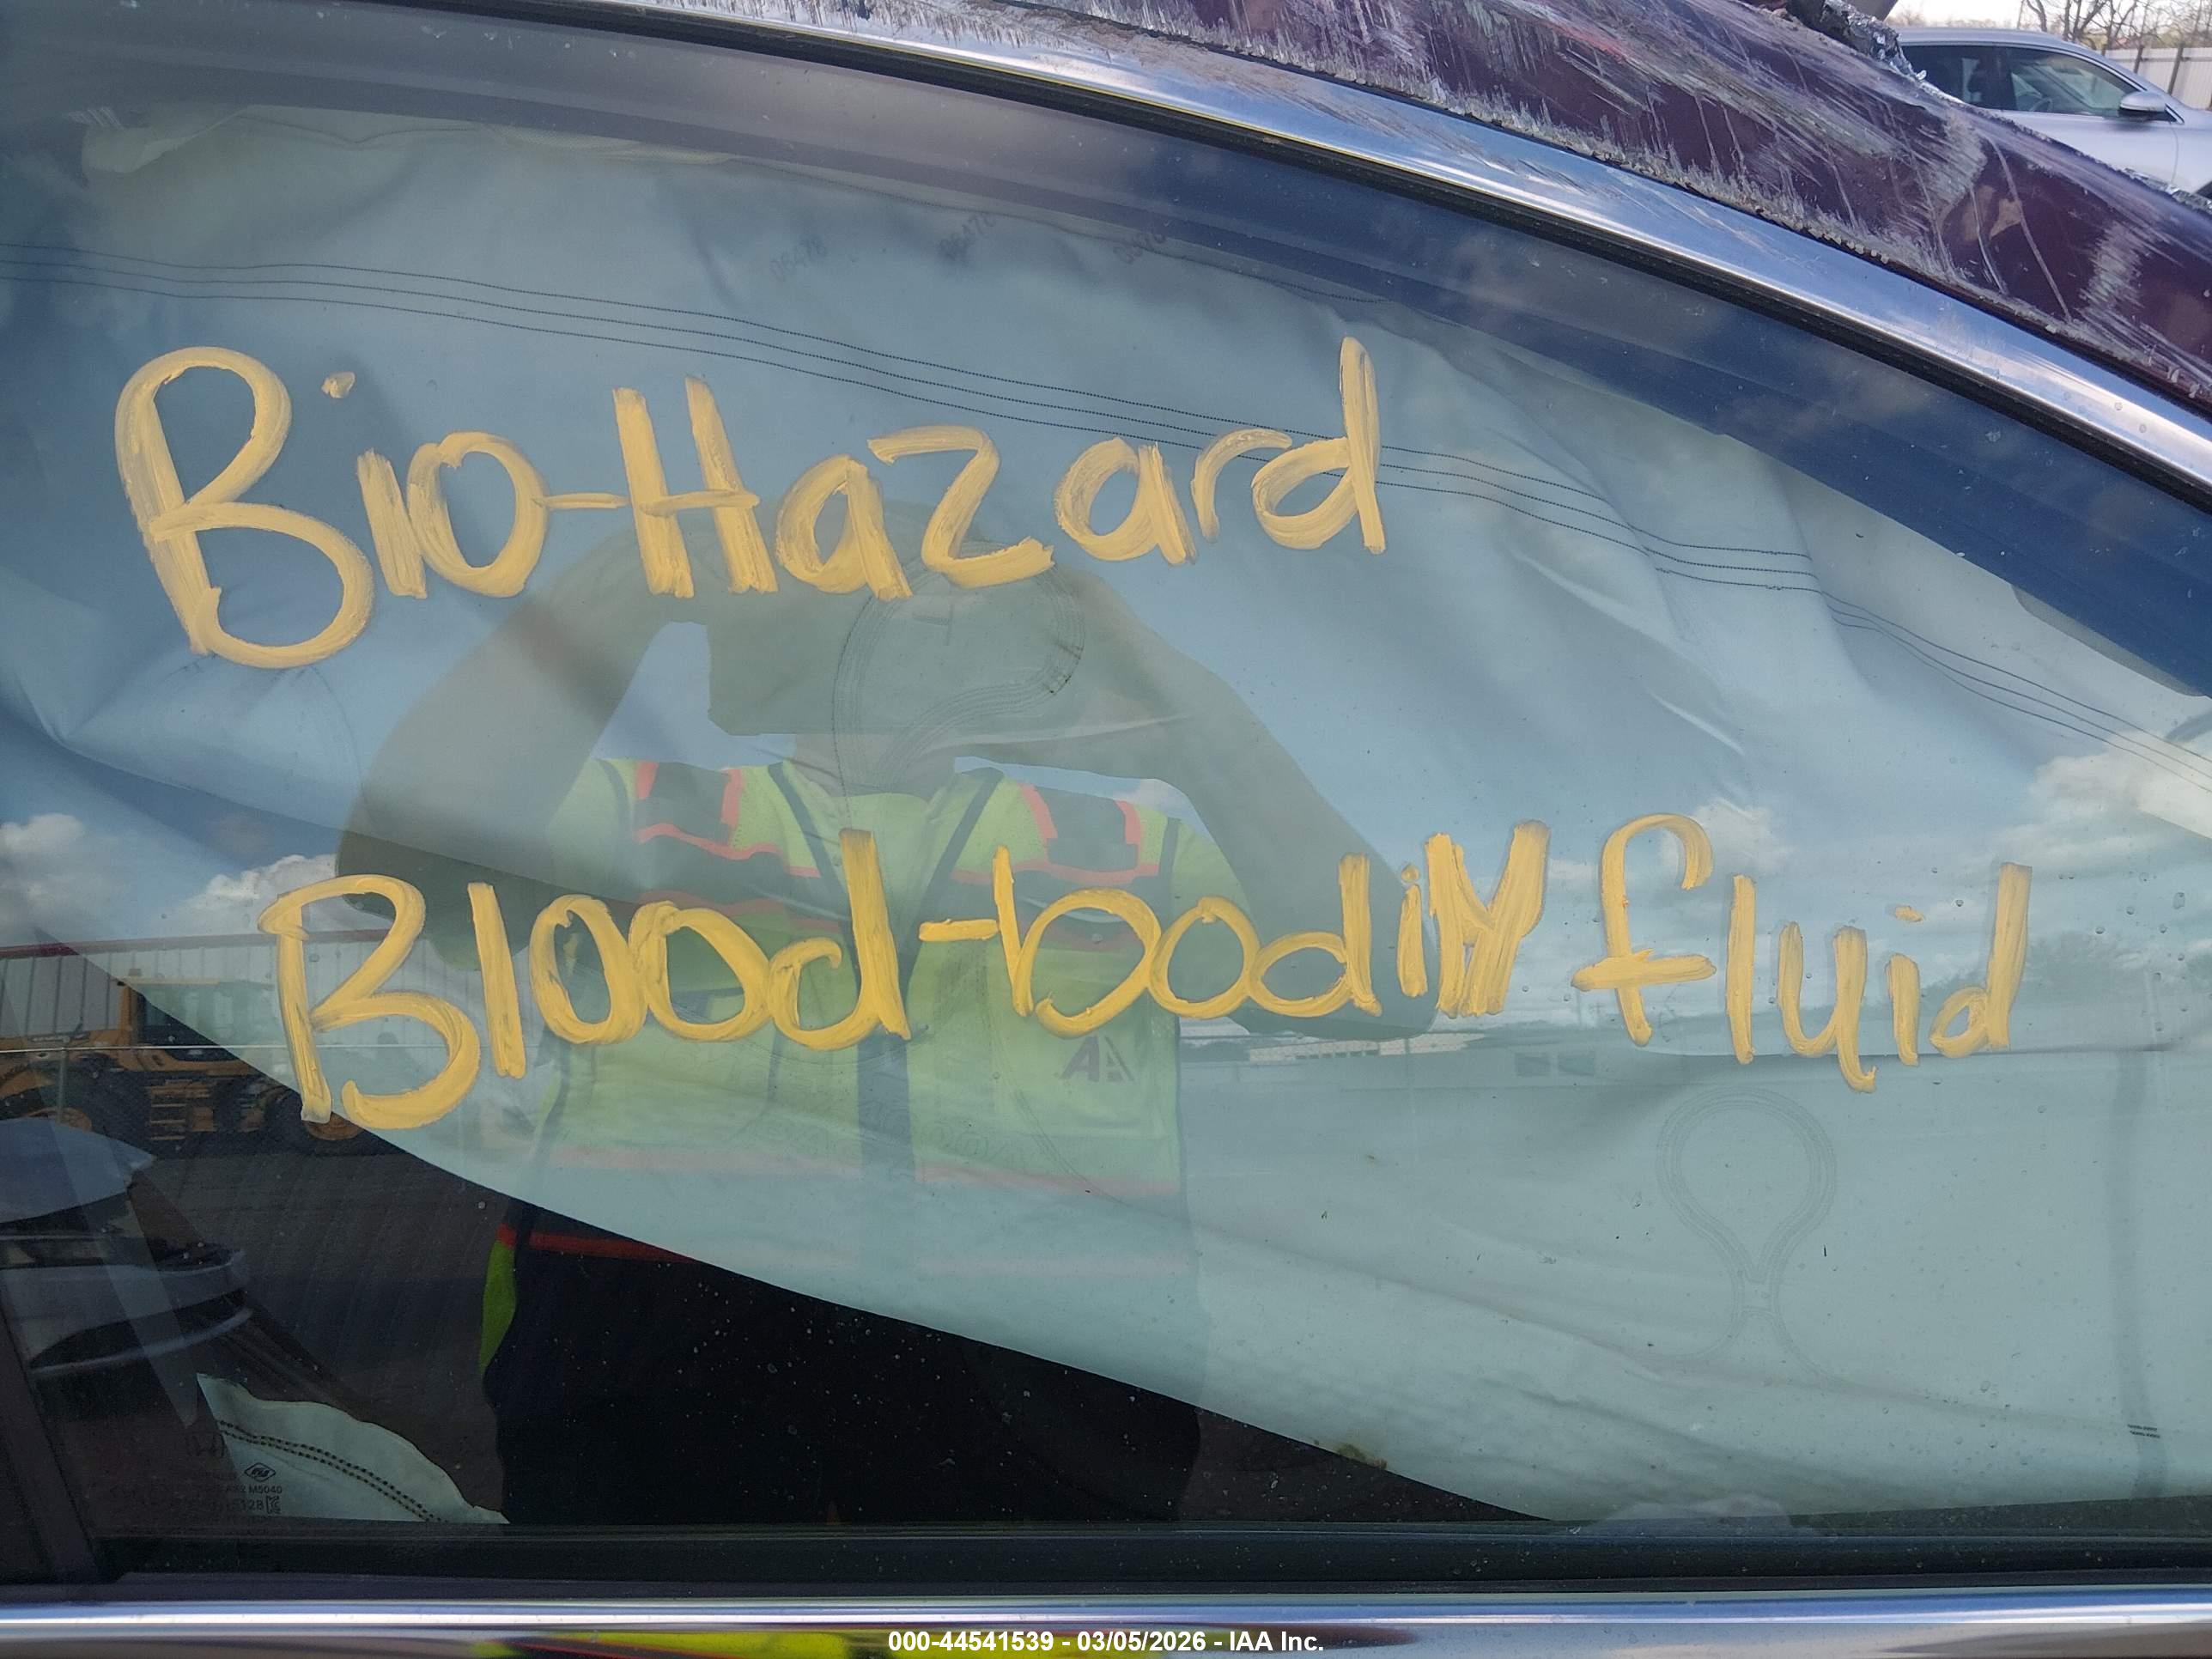 Bio-Hazard
Blood-bodily fluid
M5040
000-44541539 - 03/05/2026 - IAA Inc.